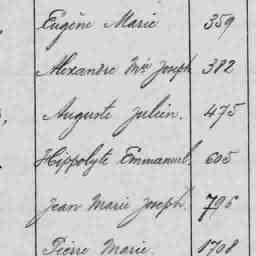 Eugène Marie 359
Alexandre Mie Joseph 382
Auguste Julien. 475
Hippolyte Emmanuel. 605
Jean Marie Joseph. 795
Pierre Marie 1708